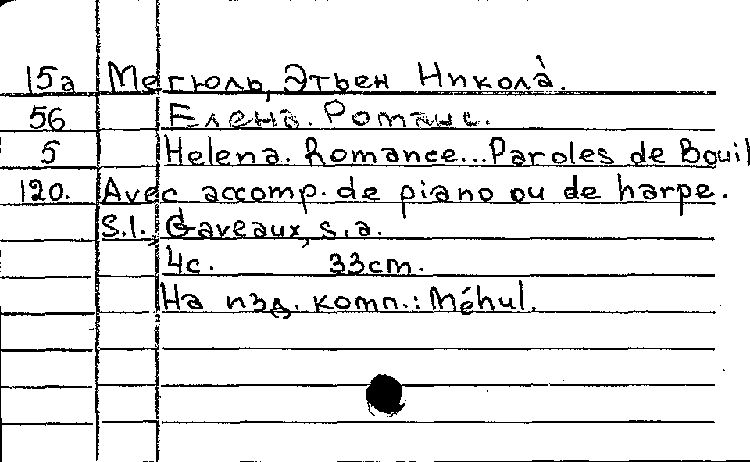 15а Мегюль, Этьен Никола̀.
56 Елена. Романс.
5 Helena. Romance... Paroles de Bouil
120. Avec accomp. de piano ou de harpe.
S.l. Gaveaux, s.a.
4с. 33cm.
На изд. комп.: Méhul.